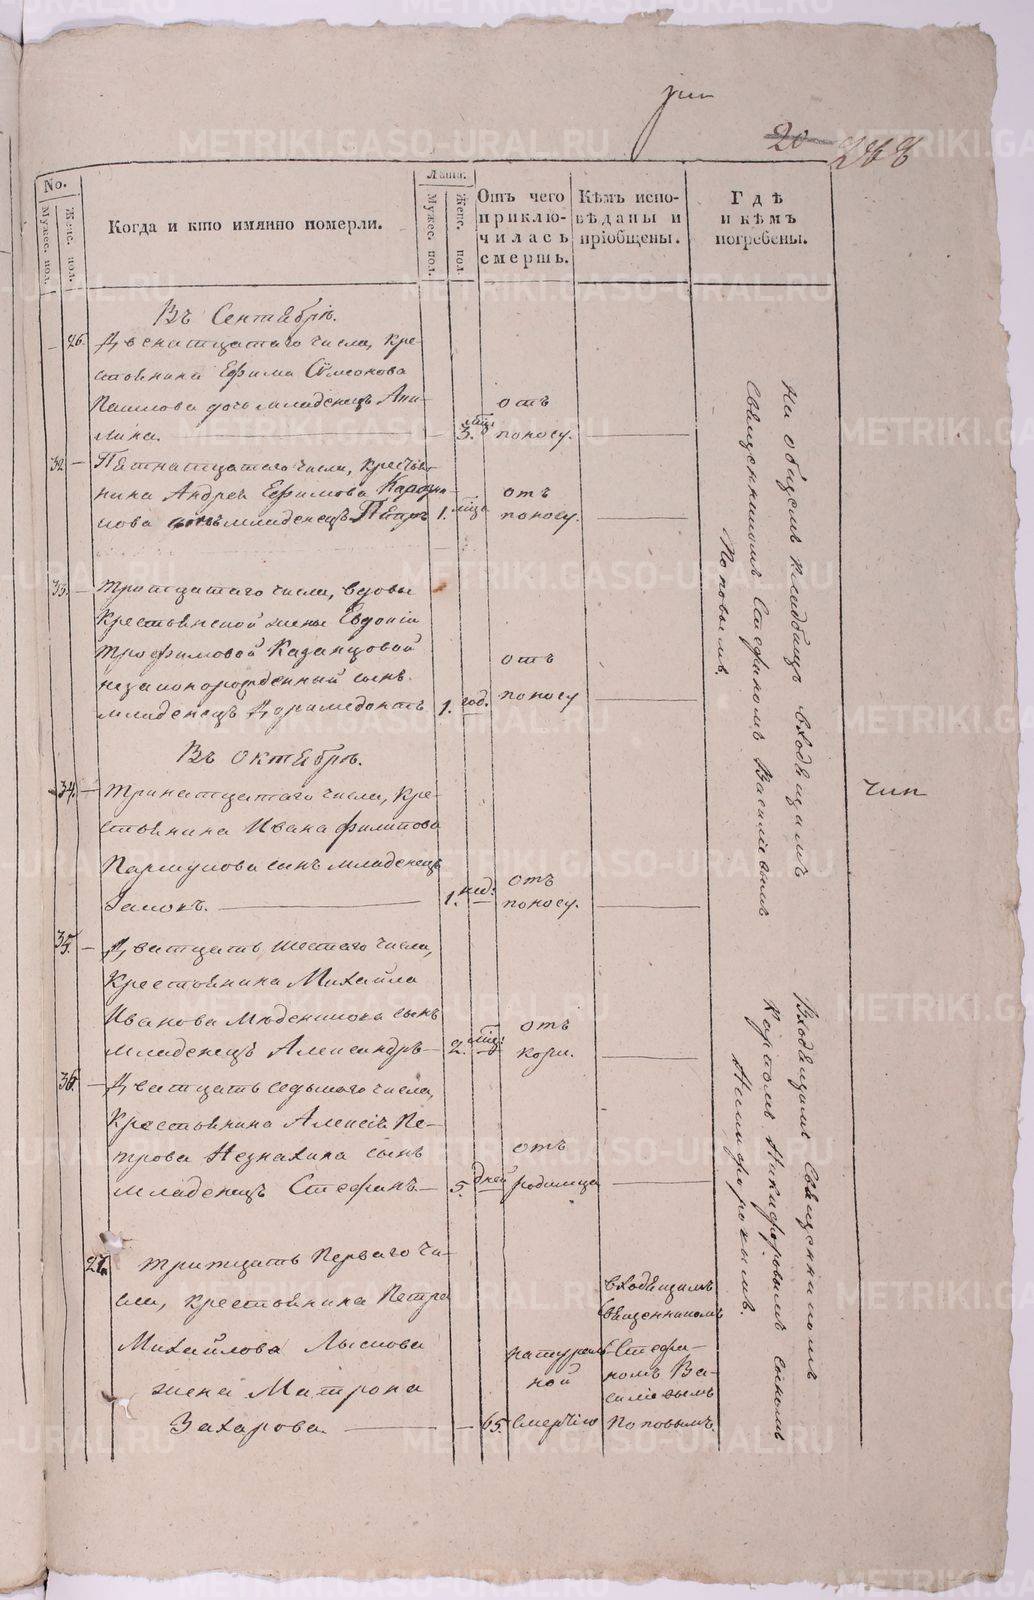 20
No.
Мужес. пол.
Женс. пол.
Когда и кто имянно померли.
Лѣта.
Мужес. пол.
Женс. пол.
Отъ чего
приклю-
чилась
смерть.
Кѣмъ испо-
вѣданы и
пріобщены.
Гдѣ
и кѣмъ
погребены.
Въ Сентябрѣ.
26. Двенатцатаго числа, кре-
стьянина Ефима Сѵмеонова
дочь младенецъ Аки-
лина. 3. мѣц: отъ поносу.
32 Пятнатцатаго числа, крестья-
нина Андрея Ефимова
сынъ младенецъ Петръ 1. мѣц: отъ поносу.
33. Тритцатаго числа, вдовы
крестьянской жены Евдокіи
Трофимовой Казанцовой
незаконорожденный сынъ
младенецъ Доримедонтъ 1. год. отъ поносу
Въ Октябрѣ.
34. Тринатцатаго числа, кре-
стьянина Ивана Филипова
Паршукова сынъ младенецъ
1. нед: отъ поносу.
35. Дватцать шестаго числа,
крестьянина Михайла
Иванова сынъ
младенецъ Александръ 2. мѣц: отъ кори.
36. Дватцать седьмого числа,
крестьянина Алексѣя Пе-
трова Незнахина сынъ
младенецъ Стефанъ 5. дней отъ родимца
27. Тритцать перваго чи-
сла, крестьянина Петра
Михайлова Лыскова
жена Матрона
Захарова. 65. натураль-
ной
смертію
входящимъ
священникомъ
Стефа-
номъ Ва-
сильевымъ
Поповымъ.
На общемъ кладбищѣ входящимъ
священникомъ Стефаномъ Васильевымъ
Поповымъ.
Входящимъ священникомъ
Карпомъ Никифоровымъ сыномъ
Никифоровымъ.